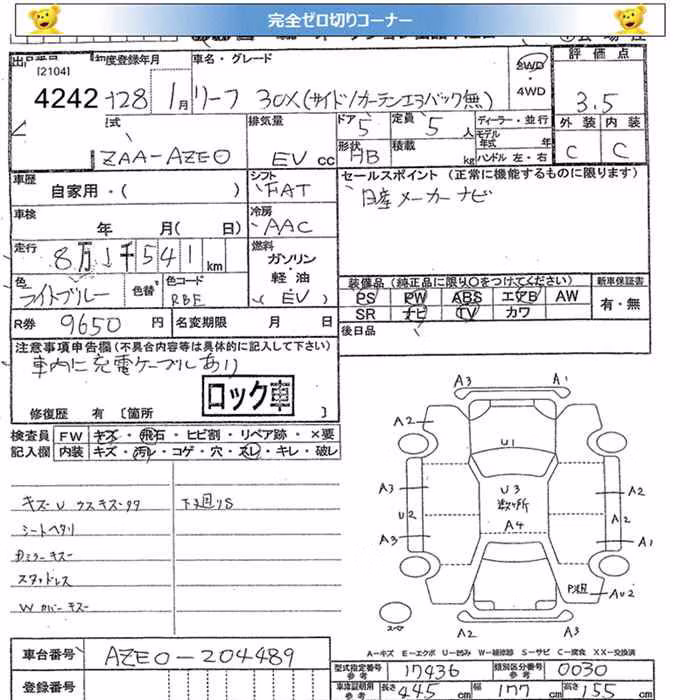 完全ゼロ切りコーナー
[2104] 初度登録年月 車名・グレード 評価点
4242 H28 1月 リーフ 30X(サイド/カーテンエアバック無) 2WD・4WD 3.5
外装 内装
C C
型式 ZAA-AZE0 排気量 EV cc ドア 5 定員 5人 ディーラー・並行
形状 HB 積載 kg モデル年式 年 ハンドル 左・右
車歴 自家用・( ) シフト FAT セールスポイント (正常に機能するものに限ります)
車検 年 月( 日) 冷房 AAC 日産メーカーナビ
走行 8万1千541km 燃料 ガソリン・軽・油 (EV)
色 ライトブルー 色替 色コード RBE
装備品 (純正品に限り○をつけてください) 新車保証書
PS PW ABS エアB AW 有・無
SR ナビ TV カワ
R券 9650円 名変期限 月 日 後日品
注意事項申告欄(不具合内容等は具体的に記入して下さい)
車内に充電ケーブルあり
ロック車
修復歴 有 [箇所 ]
検査員記入欄 FW キズ・飛石・ヒビ割・リペア跡・×要
内装 キズ・汚レ・コゲ・穴・スレ・キレ・破レ
キズ・U ウスキズ・タタ 下廻りS
シートヘタリ
Dミラーキズ
スタッドレス
Wカバーキズ
A3 A1
A2
U1
A3 U3 A2
U2 数ヶ所 A2
A3 A4 A1
P凹 AU2
スペア
A2 A3
A-キズ E-エクボ U-凹み W-補修跡 S-サビ C-腐食 XX-交換済
車台番号 AZE0-204489
型式指定番号 参考 17436 類別区分番号 参考 0030
登録番号
車庫証明用 参考 長さ 445cm 幅 177cm 高さ 155cm